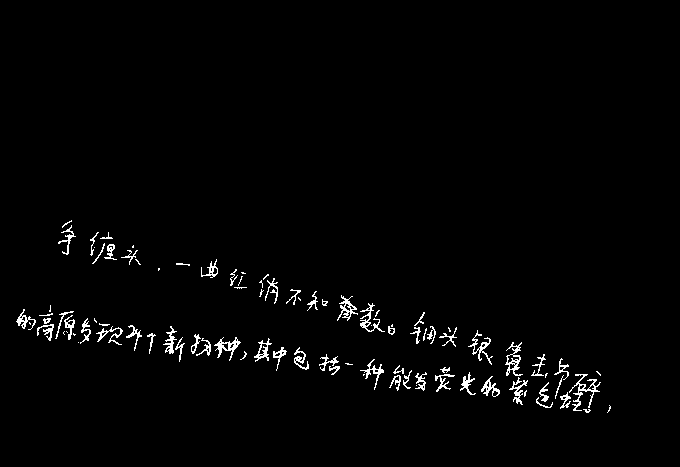 争缠头,一曲红绡不知数。钿头银篦击节碎,
的高原发现24个新物种,其中包括一种能发荧光的紫色蛙,